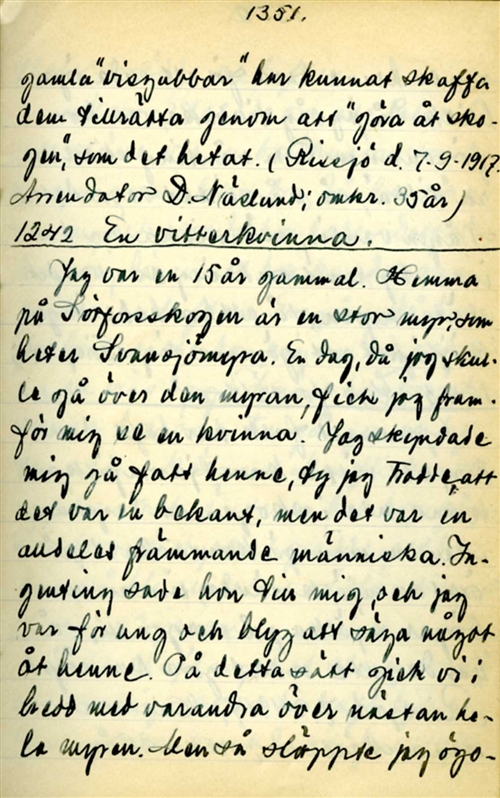 1351.
gamla "visgubbar" har kunnat skaffa
dem tillrätta genom att "göra åt sko-
gen", som det hetat. (Risesjö d. 7-9-1917.
Arrendator D. Näslund; omkr. 35 år)
1242 En vitterkvinna.
Jag var en 15 år gammal. Hemma
på Sörforsskogen är en stor myr, som
heter Svansjömyra. En dag, då jag skul-
le gå över den myran, fick jag fram-
för mig se en kvinna. Jag skyndade
mig gå fatt henne, ty jag trodde, att
det var en bekant, men det var en
alldeles främmande människa. In-
genting sade hon till mig, och jag
var för ung och blyg att säga något
åt henne. På detta sätt gick vi i
bredd med varandra över nästan he-
la myren. Men så släppte jag ögo-